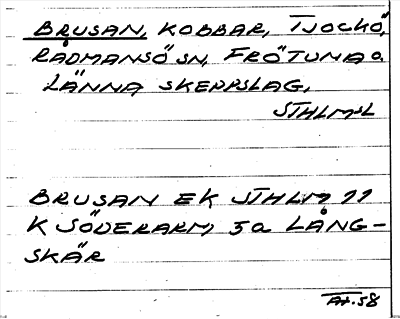 BRUSAN, KOBBAR, TJOCKÖ,
RÅDMANSÖ SN, FRÖTUNA O.
LÄNNA SKEPPSLAG,
STHLMSL
BRUSAN EK STHLM 11
K SÖDERARM, 3a LÅNG-
SKÄR
58